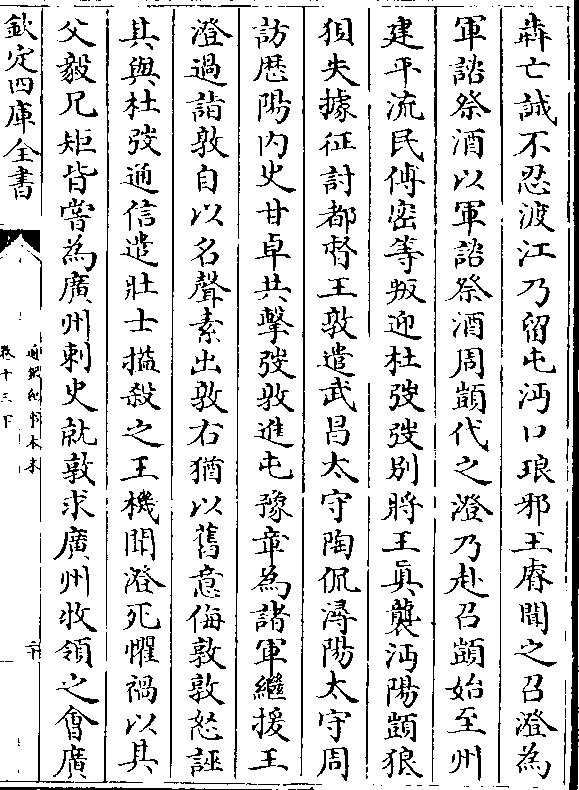 犇亡誠不忍渡江乃留屯沔口琅邪王睿聞之召澄為
軍諮祭酒以軍諮祭酒周顗代之澄乃赴召顗始至州
建平流民傅密等叛迎杜弢弢別將王真襲沔陽顗狼
狽失據征討都督王敦遣武昌太守陶侃潯陽太守周
訪歴陽内史甘卓共擊弢敦進屯豫章為諸軍繼援王
澄過詣敦自以名聲素出敦右猶以舊意侮敦敦怒誣
其與杜弢通信遣壯士搤殺之王機聞澄死懼禍以其
父毅兄矩皆嘗為廣州刺史就敦求廣州牧領之會廣
欽定四庫全書
通鑑紀事本末
卷十三下